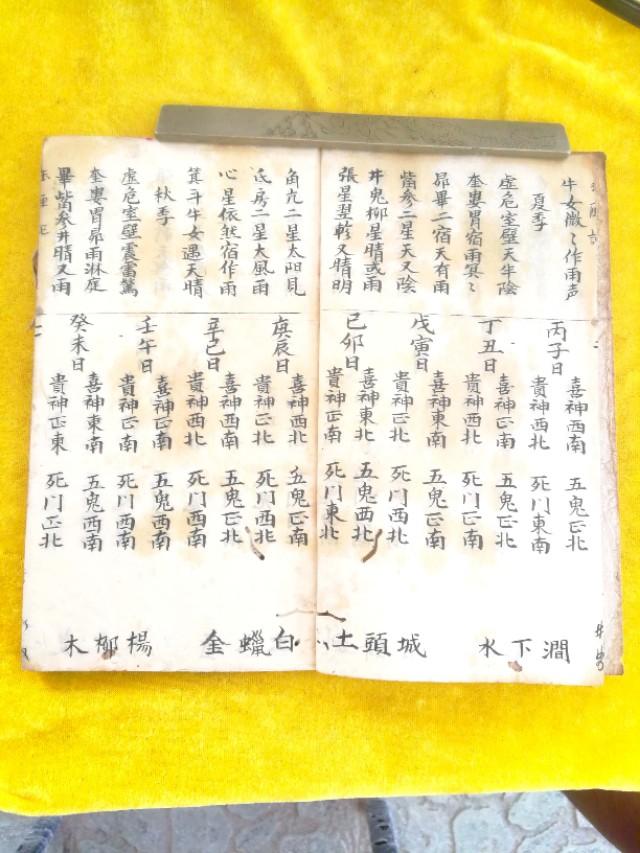 牛女微々作雨声
夏季
虛危室壁天半陰
奎婁胃宿雨冥々
昴畢二宿天有雨
觜參二星天又陰
井鬼柳星晴或雨
張星翌軫又晴明
丙子日
喜神西南 五鬼正北
貴神西北 死门東南
丁丑日
喜神正南 五鬼西北
貴神西北 死门正南
戊寅日
喜神東南 五鬼正南
貴神正北 死门西北
己卯日
喜神東北 五鬼西北
貴神正南 死门東北
澗下水
城頭土
角亢二星太阳見
氐房二星大風雨
心星依然宿作雨
箕斗牛女遇天晴
秋季
虛危室壁震雷驚
奎婁胃昴雨淋庭
畢觜參井晴又雨
庚辰日
喜神西北 五鬼正南
貴神正北 死门西北
辛巳日
喜神西南 五鬼正北
貴神西北 死门西南
壬午日
喜神正南 五鬼西南
貴神正南 死门西南
癸未日
喜神東南 五鬼西南
貴神正東 死门正北
白蠟金
楊柳木